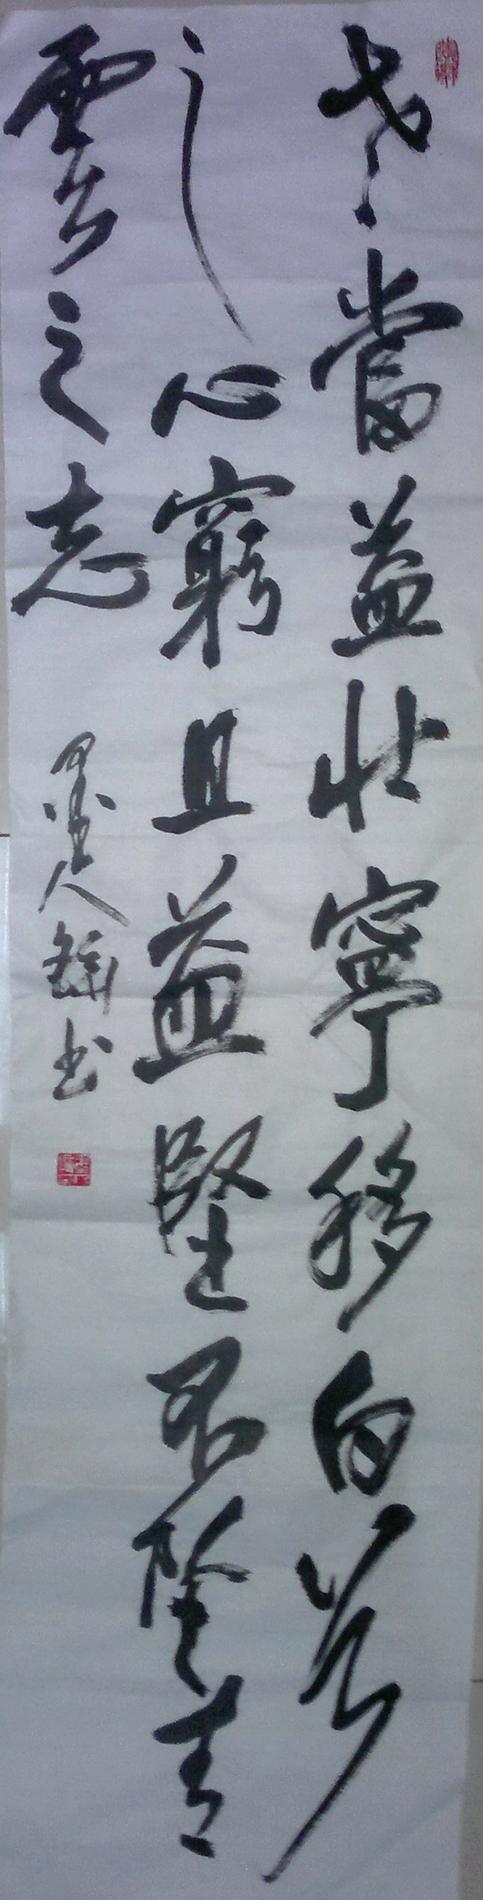 老當益壯寧移白首
之心窮且益堅不墜青
雲之志
墨人 書